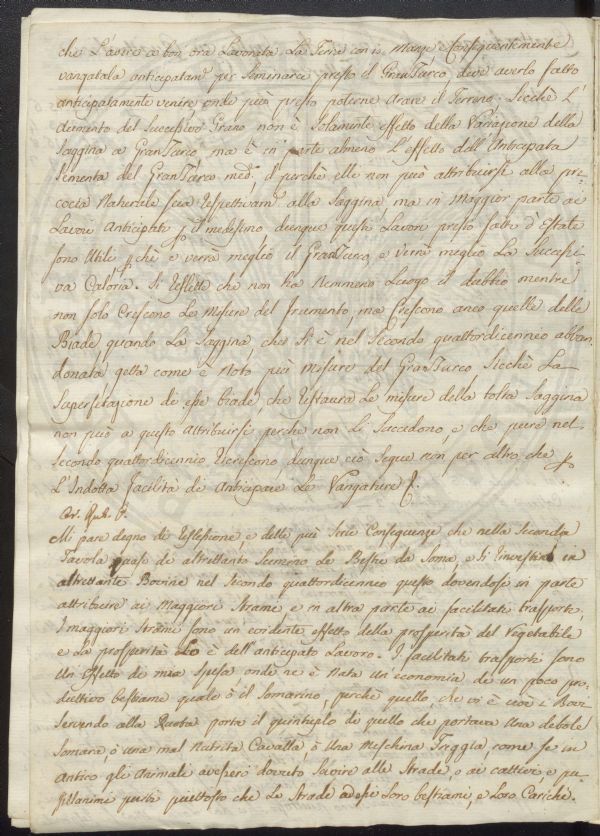 che l'avere a bon' ora Lavorata La Terra con is Mange e Conseguentemente
vangatala anticipatam.e per Seminarci presto il Gran Turco, deve averlo fatto
anticipatamente venire onde più presto poterne Arare il Terreno. Sicchè L'
Aumento del Successivo Grano non è Solamente effetto della Variazione della
Saggina a Gran Turco, ma è in parte almeno L'effetto dell'Anticipata
Sementa del Gran Turco med.o, il perchè elle non può attribuirsi alla pre
cocità Naturale sua respettivam.e alla Saggina, ma in Maggior parte ai
Lavori Anticipati p il medesimo dunque questi Lavori presto fatti d'Estate
sono Utili p chè e verrà meglio il Gran Turco, e verrà meglio La Successi
va Caloria. Si rifletta che non ha Nemmeno Luogo il dubbio mentre
non solo Crescono Le Misure del frumento, ma Crescono anco quelle delle
Biade quando La Saggina, che Si è nel Secondo quattordicennio abban
donata getta come è Noto più misure del Gran Turco Sicchè La
Superfetazione di esse biade, che restaura Le misure della tolta Saggina
non può a questo Attribuirsi perche non Le Succedono, e che pure nel
Secondo quattordicennio ricrescono dunque ciò Segue non per altro che p
L'Indotta facilità di Anticipare Le Vangature
Mi pare degno di riflessione, e delle più Serie Conseguenze che nella Seconda
Tavola quasi di altrettanto Scemino Le Bestie da Soma, e Si investino in
altrettante Bovine nel Secondo quattordicennio questo dovendosi in parte
attribuire ai Maggiori Strami e in altra parte ai facilitati trasporti,
I maggiori Strami sono un evidente effetto della prosperità del Vegetabile
e La prosperità Lo è dell'anticipato Lavoro. I facilitati trasporti sono
Un Effetto di mia Spesa onde ne è Nata un'economia di un poco pro
duttivo bestiame quale è il Somarino, perchè quello, che vi è cioè i Bovi
servendo alla Ruota porta il quintuplo di quello che portava Una debole
Somara, o una mal Nutrita Cavalla, o Una Meschina Treggia, come se in
Antico gli Animali avessero dovuto Servire alle Strade, o ai cattivi, e pu
sillanimi passi piuttosto che Le Strade adessi Loro bestiami, e Loro Cariche.